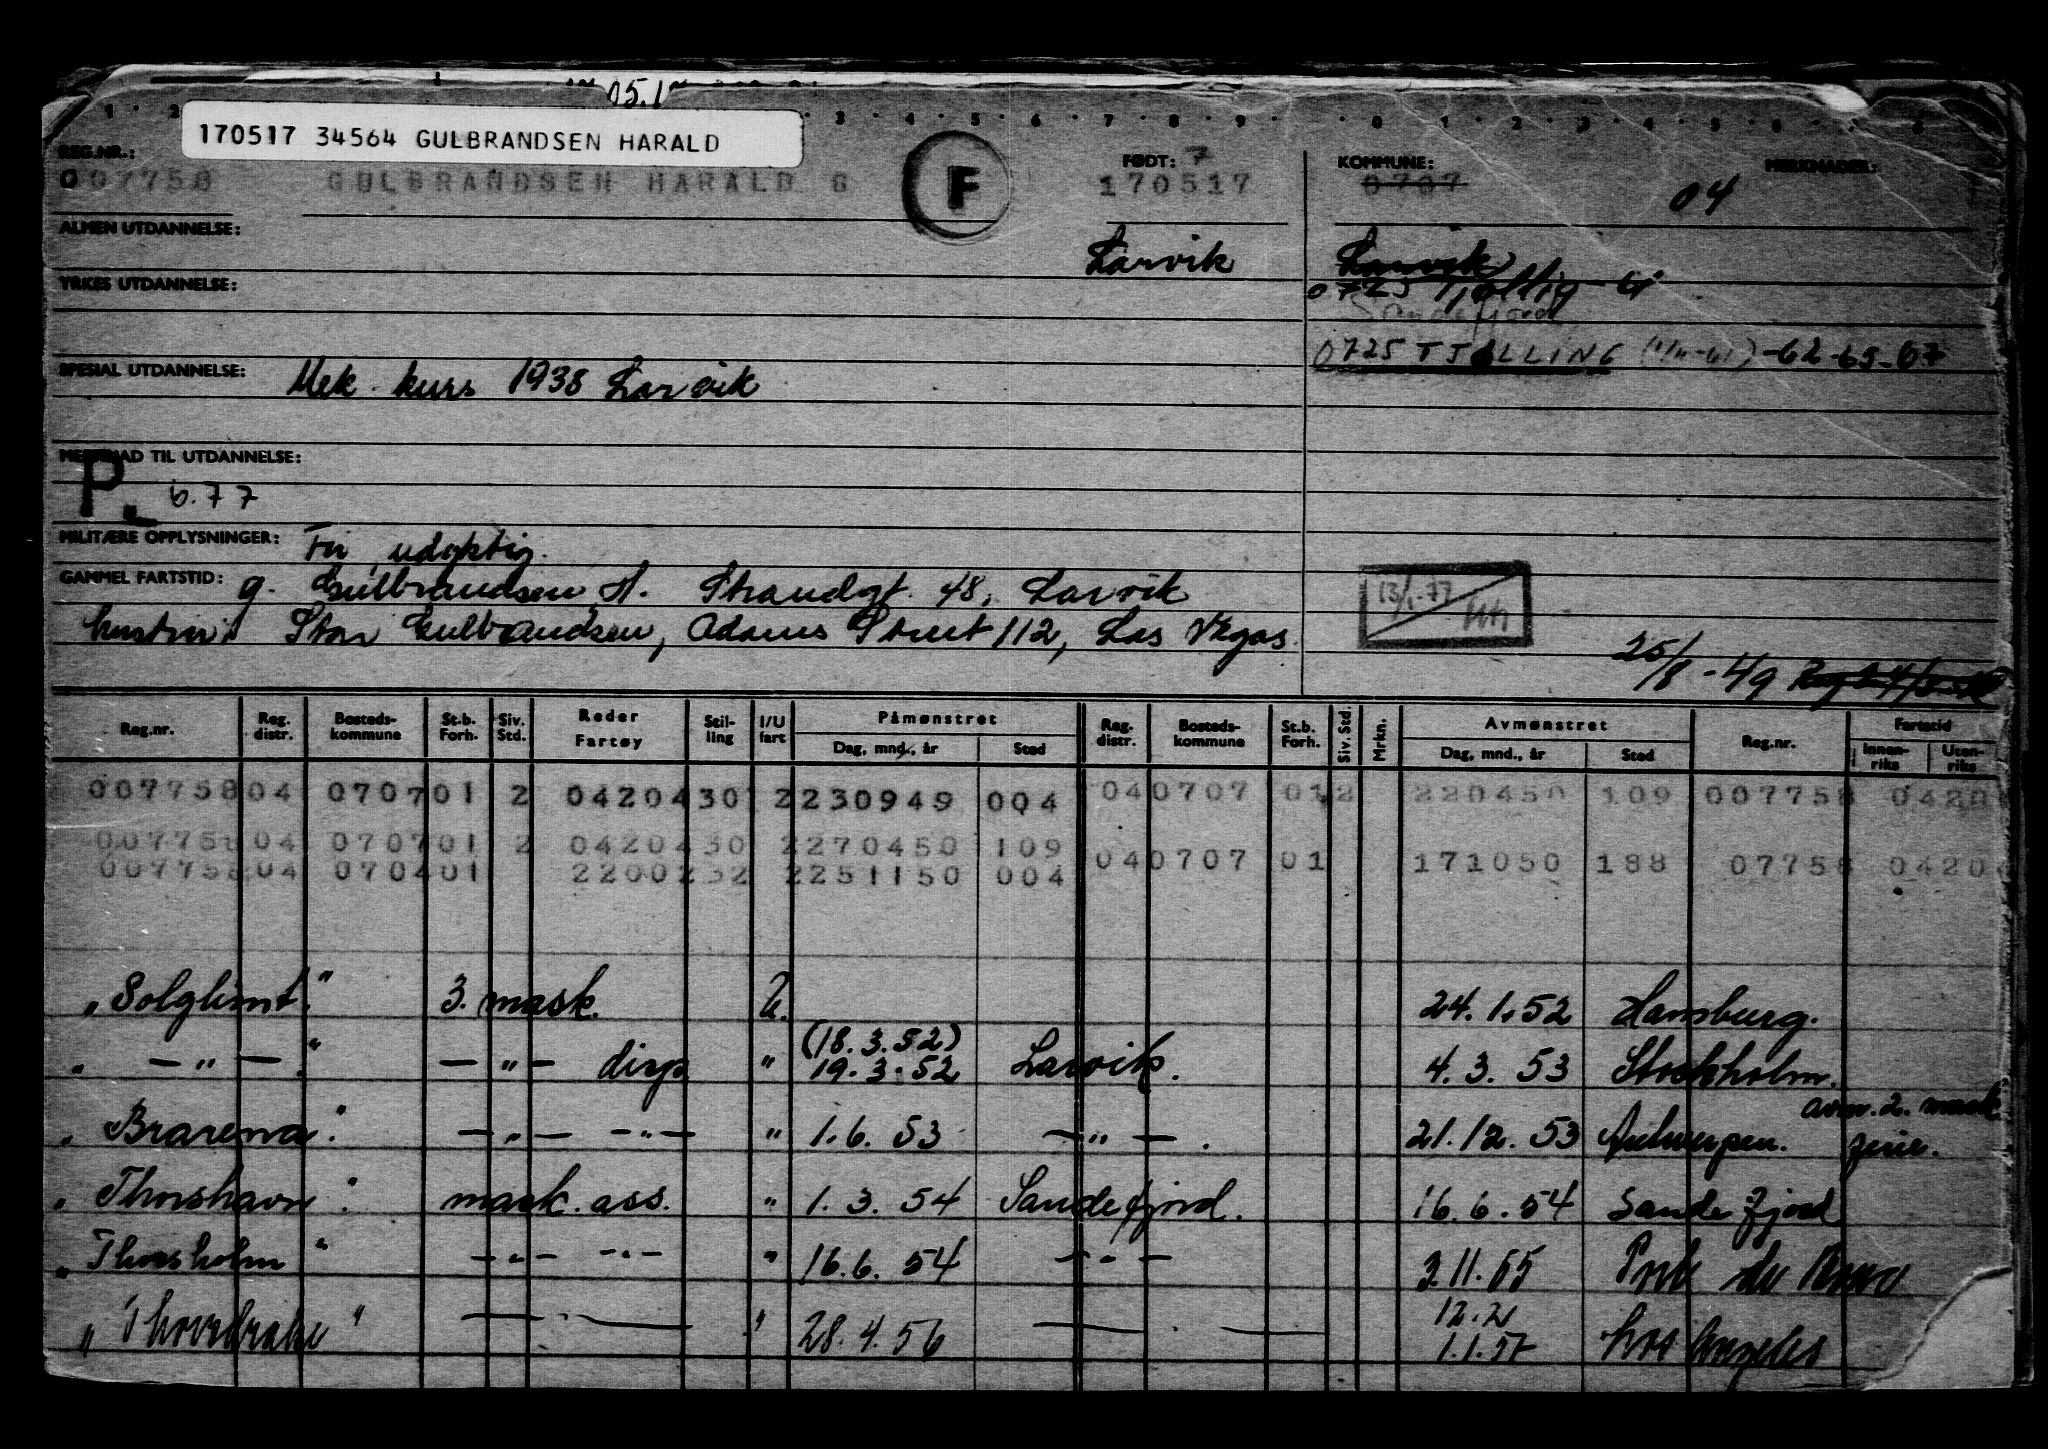 05.1
170517 34564 GULBRANDSEN HARALD
REG.NR.: FØDT: 7 KOMMUNE: MERKNADER:
007758 GULBRANDSEN HARALD G F 170517 0707 04
ALMEN UTDANNELSE: Larvik Larvik
YRKES UTDANNELSE: 0725 Tjølling
Sandefjord
0725 TJØLLING -62-65-67
SPESIAL UTDANNELSE: Mek. kurs 1938 Larvik
MERKNAD TIL UTDANNELSE:
P. 6.77
MILITÆRE OPPLYSNINGER: Fri, udyktig.
GAMMEL FARTSTID: g. Gulbrandsen H. Strandgt. 48, Larvik
hustru: Gulbrandsen, Adams Street 112, Las Vegas.
13/1-77
25/8-49
Reg.nr. Reg. distr. Bosteds-kommune St.b. Forh. Siv. Std. Reder Fartøy Stil-ling I/U fart Påmønstret Dag, mnd., år Sted Reg. distr. Bosteds-kommune St.b. Forh. Siv. Std. Mrkn. Avmønstret Dag, mnd., år Sted Reg.nr. Fartstid Innen-riks Uten-riks
007758 04 0707 01 2 04204 30 2 230949 004 04 0707 01 2 220450 109 007758 0420
007758 04 0707 01 2 04204 30 2 270450 109
04 0707 01 171050 188 07758 0420
007758 04 0704 01 22002 32 2 251150 004
"Solglimt." 3. mask. U. 24.1.52 Hamburg.
" — " — ." — " — disp " (18.3.52) 19.3.52 Larvik. 4.3.53 Stockholm.
"Brarena". — " — — " — " 1.6.53 — " — . 21.12.53 Antwerpen. avm. 2. mask ferie.
"Thorshavn". mask. ass. " 1.3.54 Sandefjord. 16.6.54 Sandefjord
"Thorsholm" — " — — " — " 16.6.54 — " — 3.11.55
" " 28.4.56 12.2 1.1.57 Los Angeles